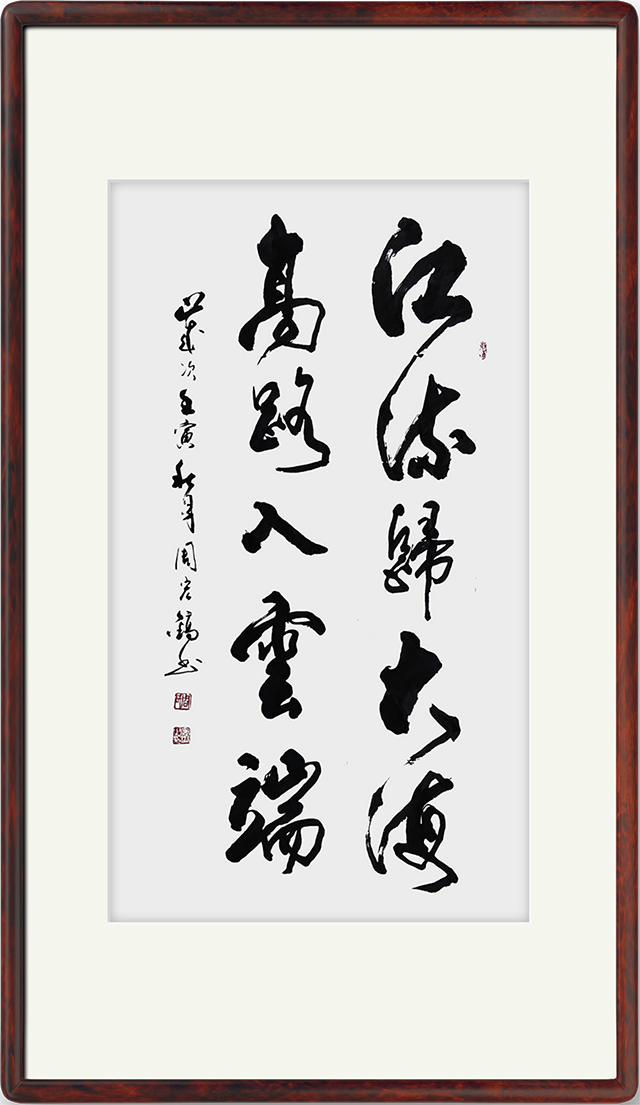 江流歸大海
高路入雲端
歲次壬寅秋月周宏鎬書